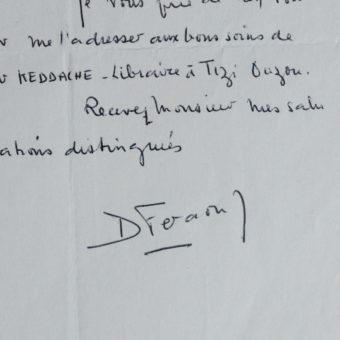 je vous prie de
me l'adresser aux bons soins de
KEDDACHE - Libraire à Tizi Ouzou.
Recevez Monsieur mes salu
ations distingués
D Feraoun